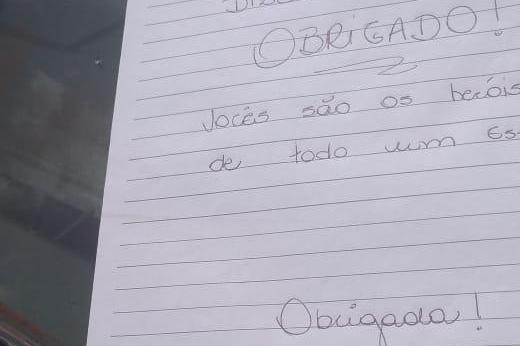 OBRIGADO!
Vocês são os heróis
de todo um Es
Obrigada!